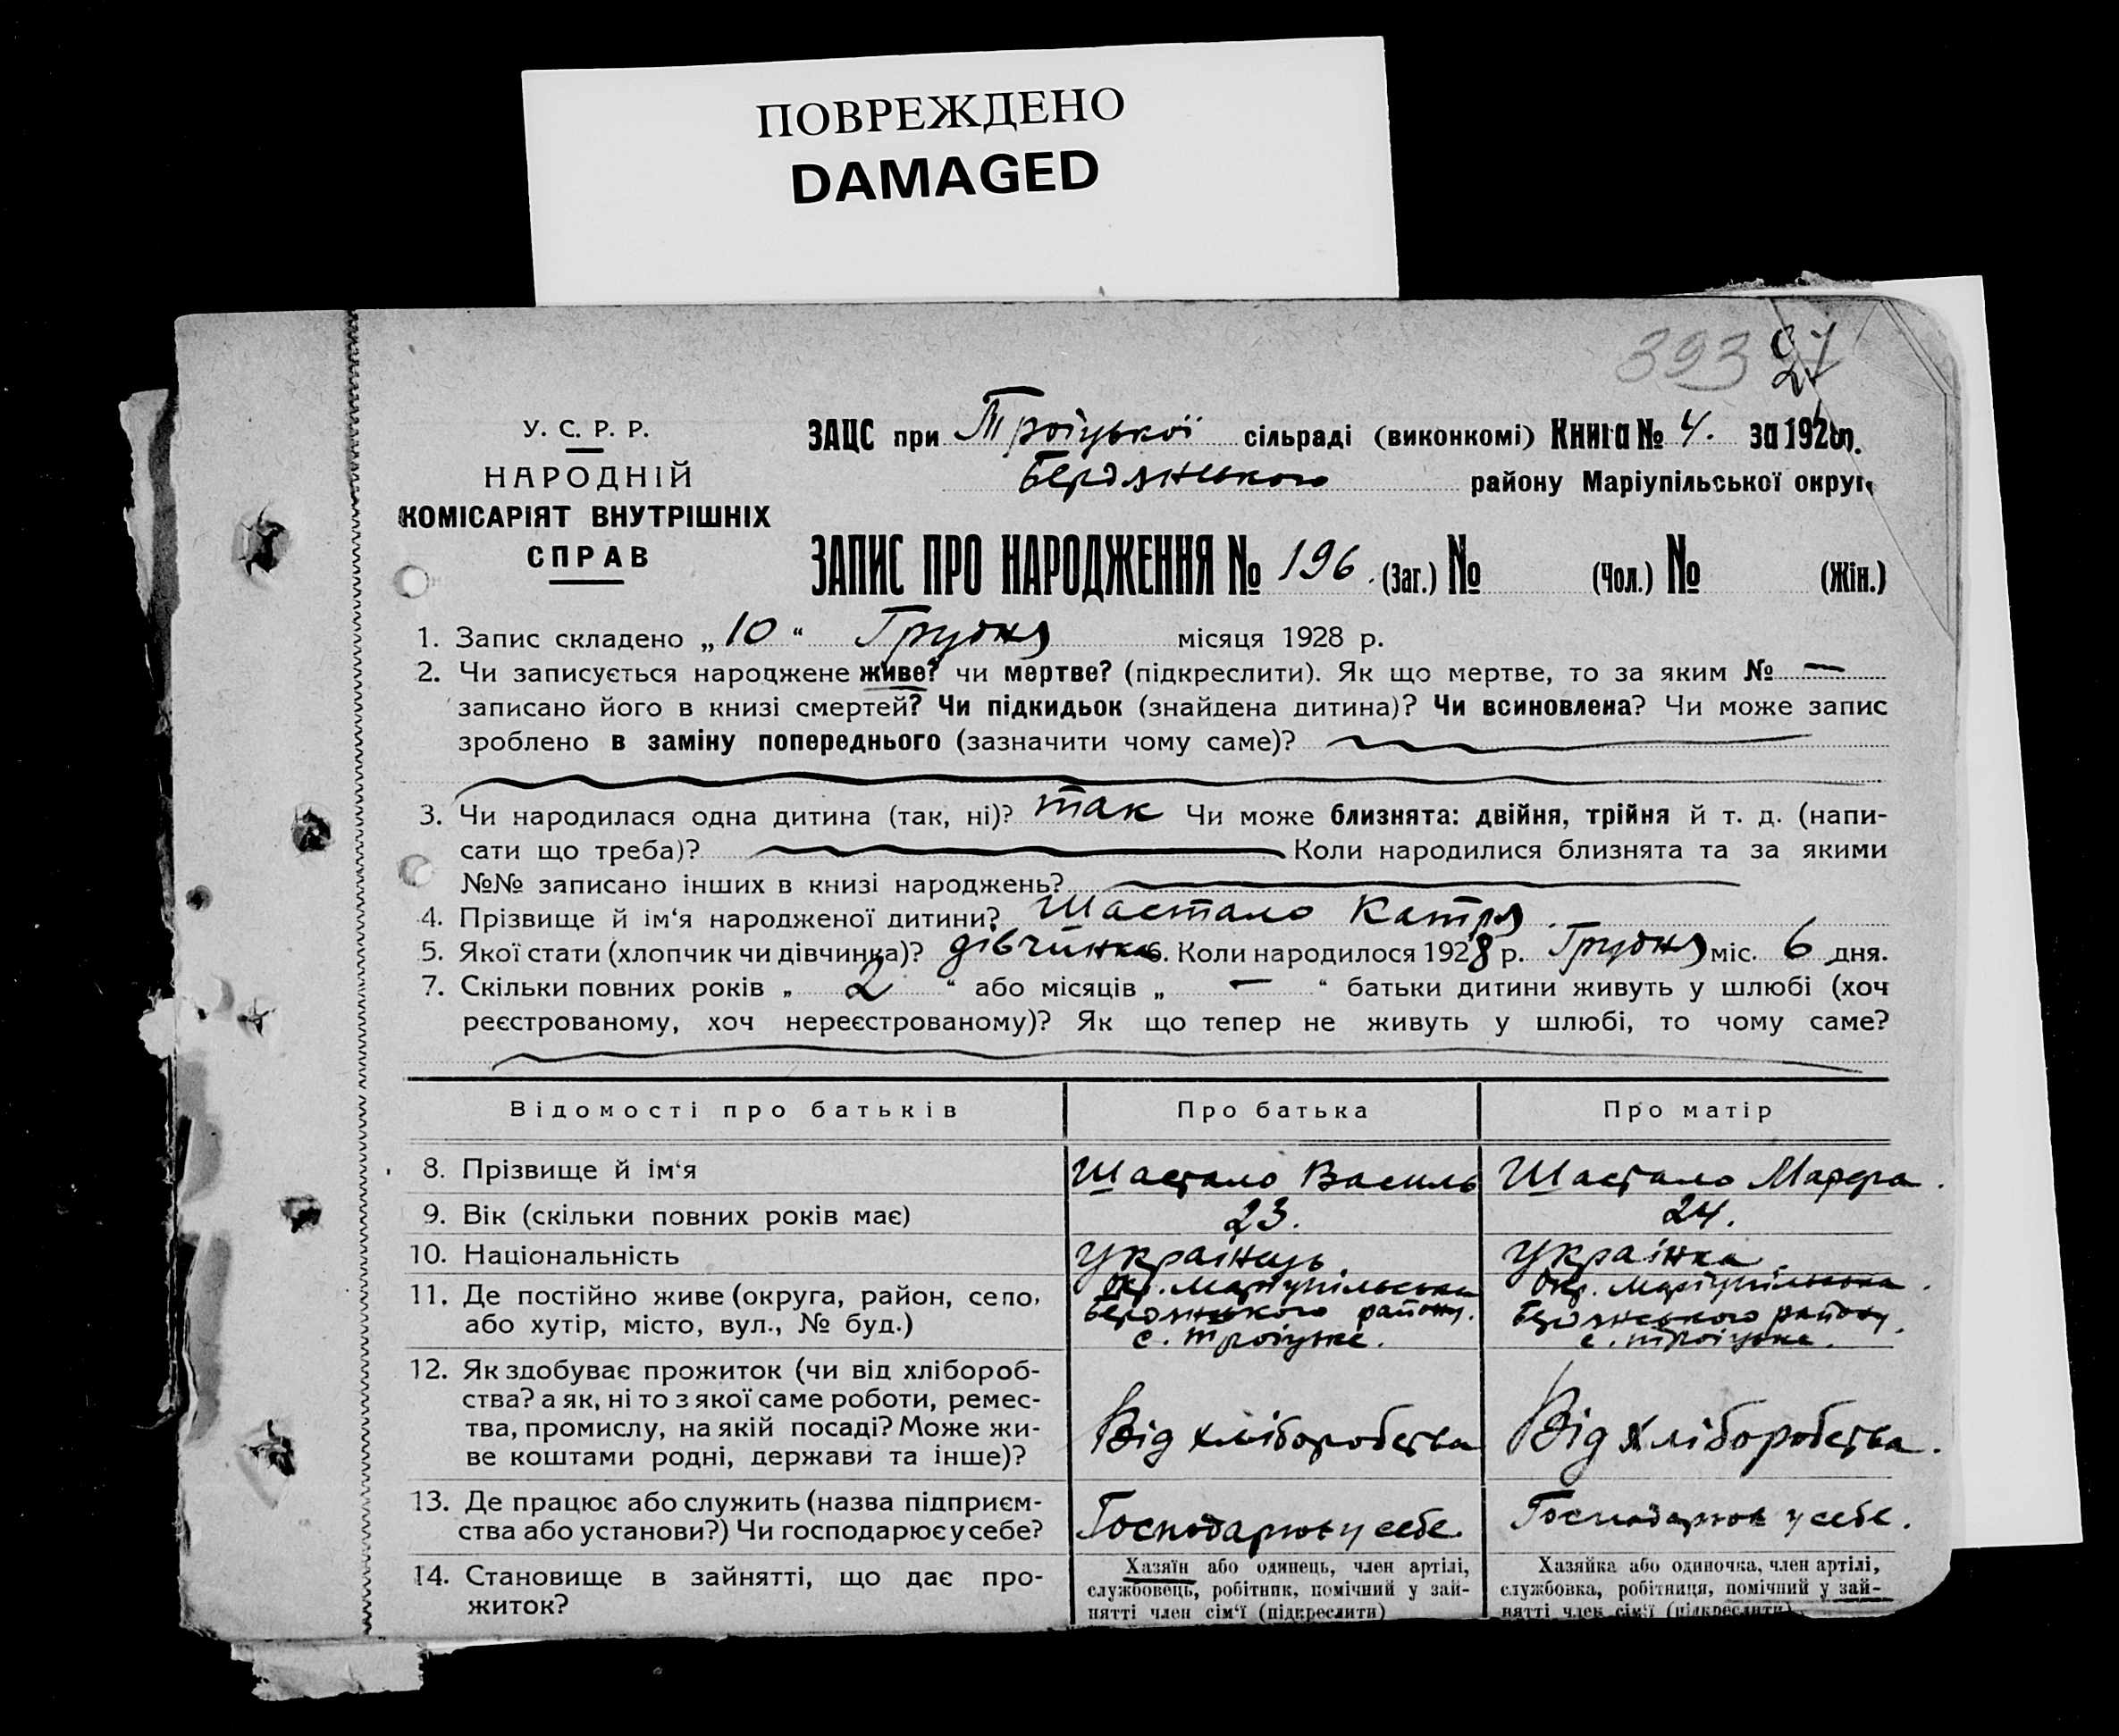 ПОВРЕЖДЕНО
DAMAGED
393 27
У. С. Р. Р.
НАРОДНІЙ
КОМІСАРІЯТ ВНУТРІШНІХ
СПРАВ
ЗАЦС при Троїцької сільраді (виконкомі) Книга № 4. за 1928 р.
Бердянського району Маріупільської округ
ЗАПИС ПРО НАРОДЖЕННЯ № 196. (Заг.) № (Чол.) № (Жін.)
1. Запис складено „10“ Грудня місяця 1928 р.
2. Чи записується народжене живе? чи мертве? (підкреслити). Як що мертве, то за яким № —
записано його в книзі смертей? Чи підкидьок (знайдена дитина)? Чи всиновлена? Чи може запис
зроблено в заміну попереднього (зазначити чому саме)?
3. Чи народилася одна дитина (так, ні)? так Чи може близнята: двійня, трійня й т. д. (напи-
сати що треба)? Коли народилися близнята та за якими
№№ записано інших в книзі народжень?
4. Прізвище й ім‘я народженої дитини? Шастало Катря.
5. Якої стати (хлопчик чи дівчинка)? дівчинка 6. Коли народилося 1928 р. Грудня міс. 6 дня.
7. Скільки повних років „ 2 “ або місяців „ — “ батьки дитини живуть у шлюбі (хоч
реєстрованому, хоч нереєстрованому)? Як що тепер не живуть у шлюбі, то чому саме?
Відомості про батьків Про батька Про матір
8. Прізвище й ім‘я Шастало Василь Шастало Марфа.
9. Вік (скільки повних років має) 23. 24.
10. Національність Українець Українка
11. Де постійно живе (округа, район, село,
або хутір, місто, вул., № буд.)
Окр. Маріупільська
Бердянського району.
с. Троіцьке.
Окр. Маріупільська.
Бердянського району.
с. Троіцьке.
12. Як здобуває прожиток (чи від хлібороб-
ства? а як, ні то з якої саме роботи, ремес-
тва, промислу, на якій посаді? Може жи-
ве коштами родні, держави та інше)?
Від хліборобства
Від хліборобства.
13. Де працює або служить (назва підприєм-
ства або установи?) Чи господарює у себе?
Господарює у себе.
Господарює у себе.
14. Становище в зайнятті, що дає про-
житок?
Хазяїн або одинець, член артілі,
службовець, робітник, помічний у зай-
нятті член сім‘ї (підкреслити)
Хазяйка або одиночка, член артілі,
службовка, робітниця, помічний у зай-
нятті член сім‘ї (підкреслити)